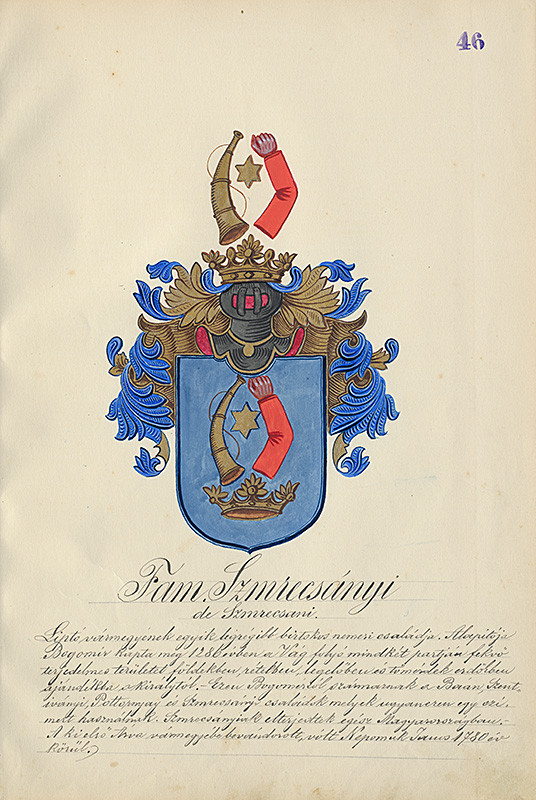 46
Fam. Szmrecsányi
de Szmrecsani.
Lipto vármegyének egyik legrégibb birtokos nemesi családja. Alapitója
Bogomir kapta még 1286 évben a Vág folyó mindkét partján fekvő
terjedelmes területet földekben, rétekben, legelőben és tömérdek erdőkben
ajándékba a királytól. – Ezen Bogomértől származnak a Baan, Szent-
iványi, Pottornyay és Szmrecsanyi családok melyek ugyanezen egy czi-
mert használnak. Szmrecsanyiak elterjedtek egész Magyarországban. –
A ki első Árva vármegyébe bevándorolt, vólt Népomuk János 1780 év
körül.)